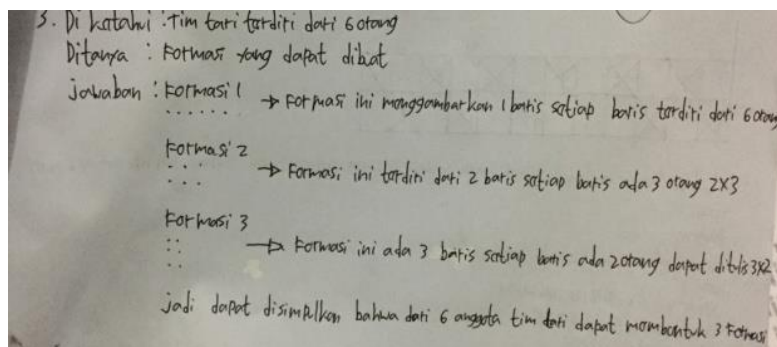 3. Diketahui : Tim tari terdiri dari 6 orang
Ditanya : Formasi yang dapat dibuat
jawaban : Formasi 1
→ Formasi ini menggambarkan 1 baris setiap baris terdiri dari 6 orang
Formasi 2
→ Formasi ini terdiri dari 2 baris setiap baris ada 3 orang 2x3
Formasi 3
→ Formasi ini ada 3 baris setiap baris ada 2 orang dapat ditulis 3x2
jadi dapat disimpulkan bahwa dari 6 anggota tim tari dapat membentuk 3 Formasi